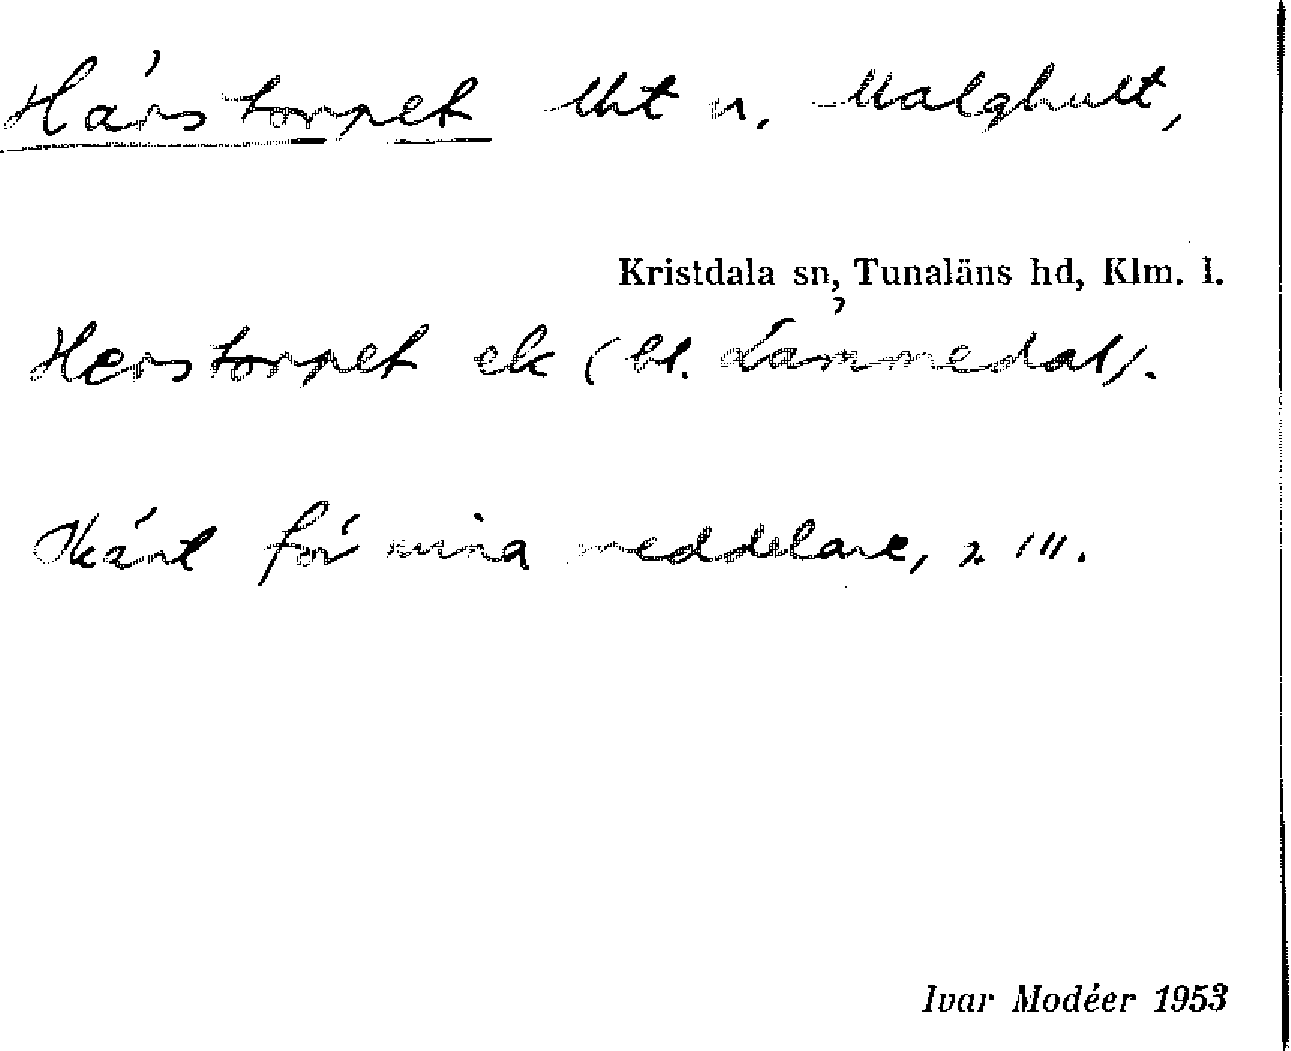 Härstorpet lht u. Malghult,
Kristdala sn, Tunaläns hd, Klm. l.
Herstorpet ek (bl. Lämmedal).
Okänt för mina meddelare,
Ivar Modéer 1953